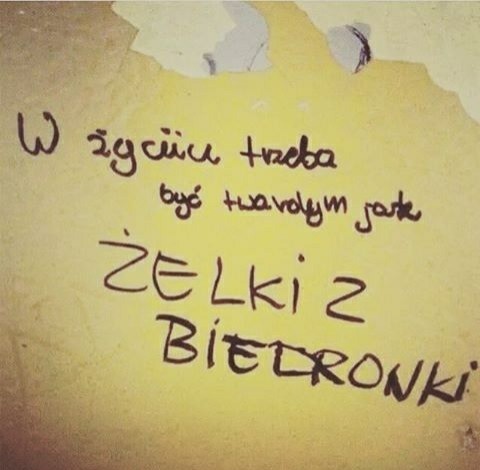 W życiu trzeba
być twardym jak
ŻELKI Z
BIEDRONKI